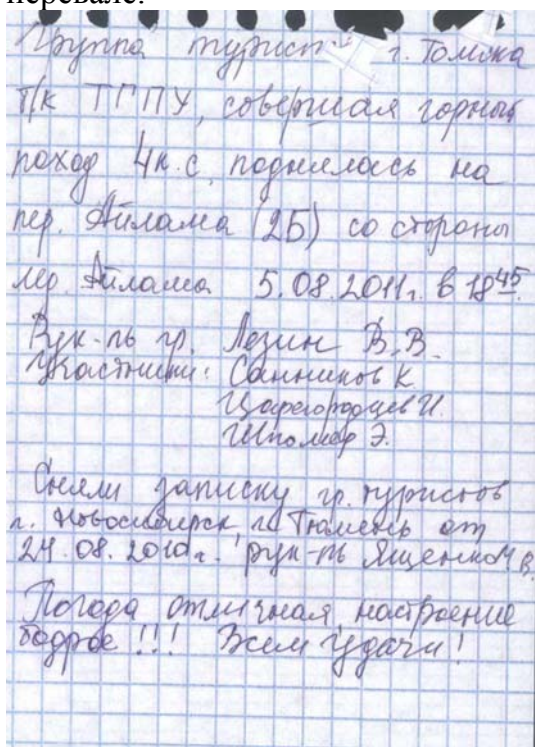 перевале:
Группа турист г. Томска
т/к ТГПУ, совершая горный
поход 4к.с. поднялась на
пер. Айлама (2Б) со стороны
лед. Айлама 5.08.2011г. в 18 45.
Рук-ль гр. Лезин В.В.
Участники: Санников К.
Царегородцев И.
Шполлер Э.
Сняли записку гр. туристов
г. Новосибирск, г. Тюмень от
24.08.2010г. рук-ль Ященко
Погода отличная, настроение
бодрое!!! Всем удачи!